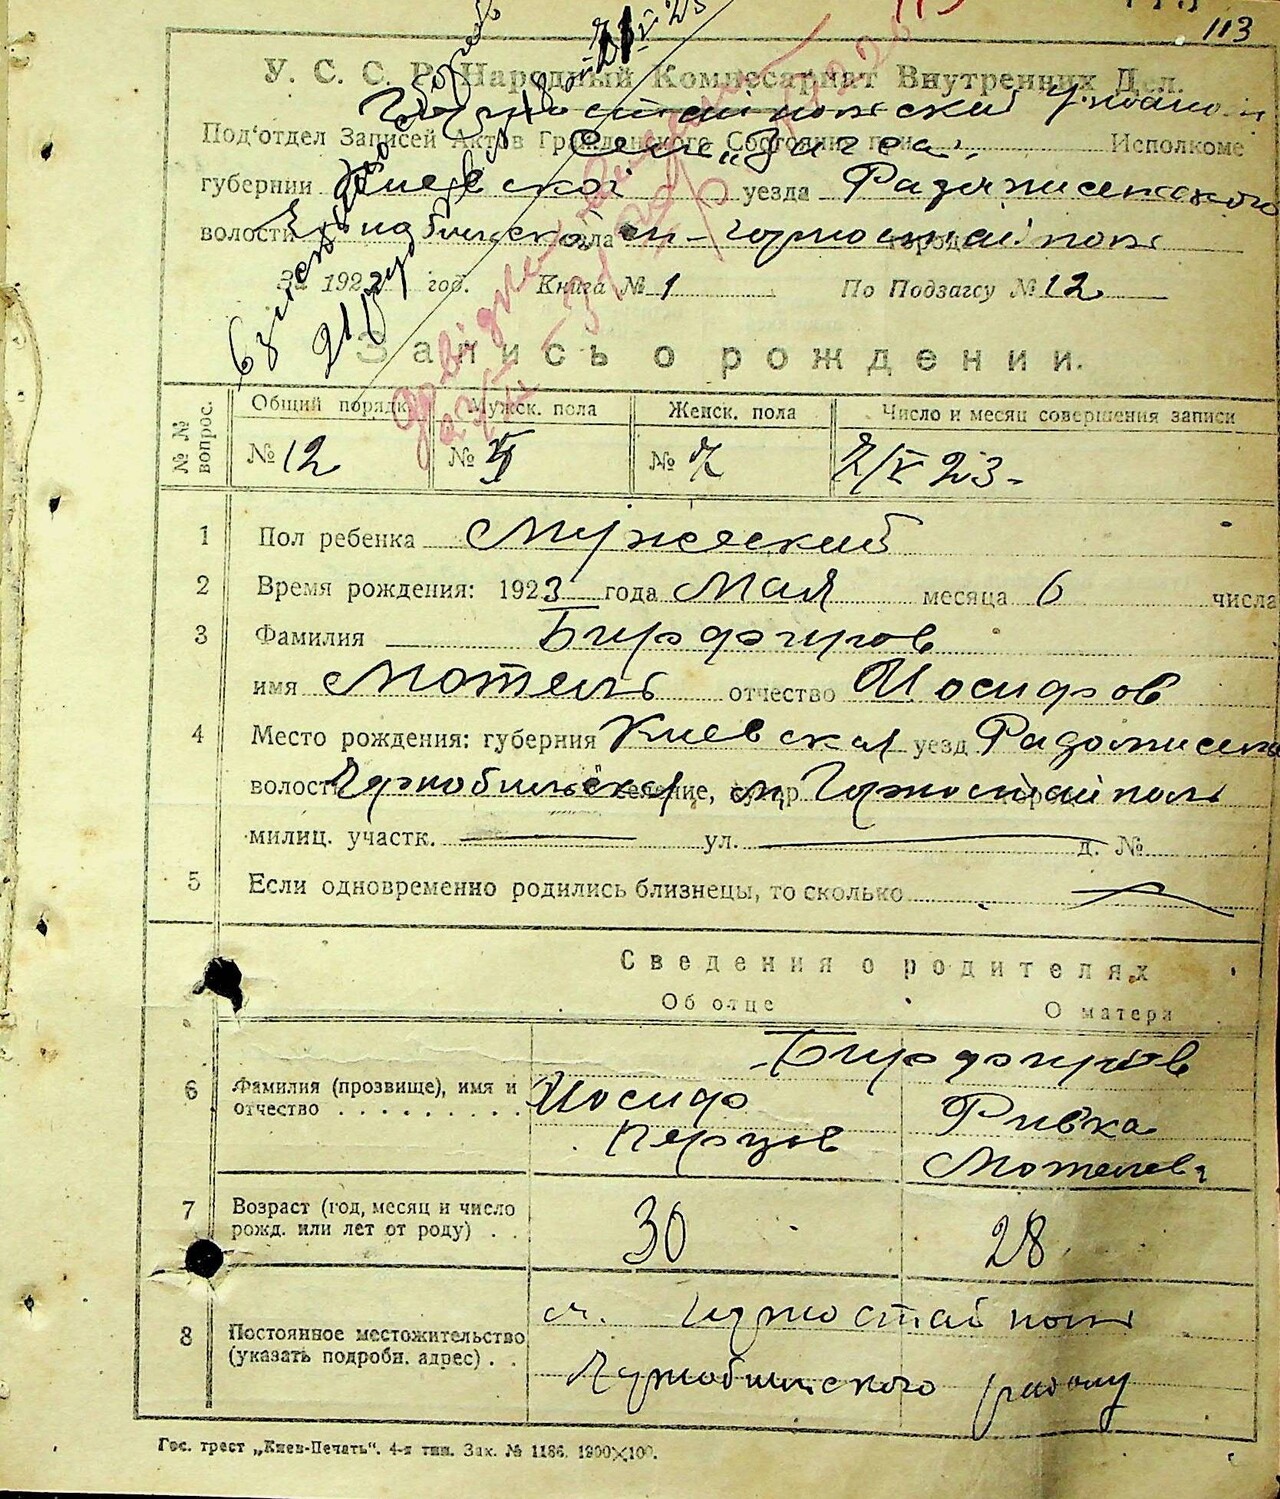 113
У. С. С. Р. Народный Комиссариат Внутренних Дел.
Под'отдел Записей Актов Гражданского Состояния при Исполкоме
губернии Киевской уезда Радомисельского
волости села м-Горностайполь город
За 1923 год. Книга № 1 По Подзагсу № 12
Запись о рождении.
№ № вопрос.
Общий порядк. Мужск. пола Женск. пола Число и месяц совершения записи
№ 12 № 5 № 7 2/V 23-
1 Пол ребенка Мужеский
2 Время рождения: 1923 года Мая месяца 6 числа
3 Фамилия
имя Мотель отчество Иосифов
4 Место рождения: губерния Киевская уезд Радомисельс
волость Чернобильская селение, хутор м Горностайполь город
милиц. участк. ул. д. №
5 Если одновременно родились близнецы, то сколько
Сведения о родителях
Об отце О матери
6 Фамилия (прозвище), имя и отчество
Иосиф Ривка
Перцов Мотелева
7 Возраст (год, месяц и число рожд. или лет от роду) 30 28
8 Постоянное местожительство (указать подробн. адрес)
м. Горностайполь
Чернобильского району
Гос. трест „Киев-Печать“. 4-я тип. Зак. № 1186. 1900×100.